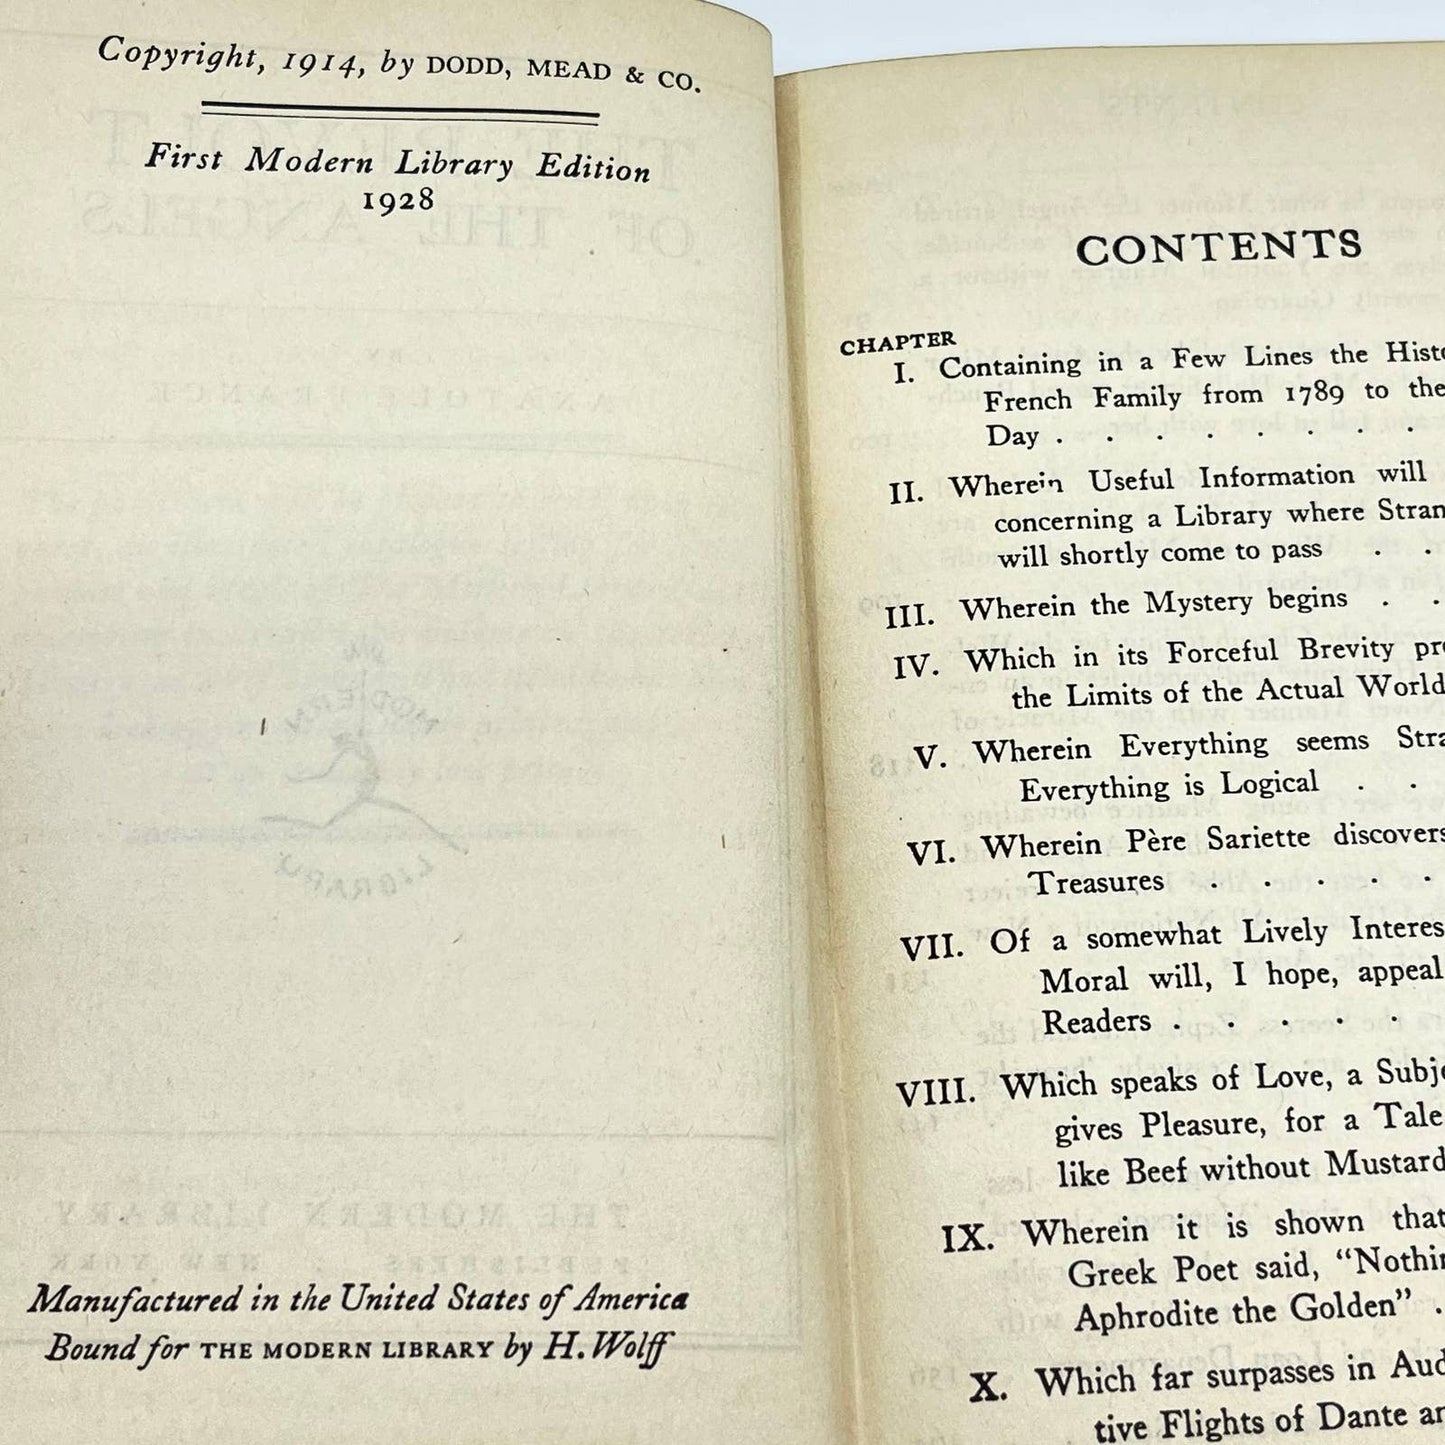 Copyright, 1914, by DODD, MEAD & CO.
First Modern Library Edition
1928
Manufactured in the United States of America
Bound for THE MODERN LIBRARY by H. Wolff
CONTENTS
CHAPTER
I. Containing in a Few Lines the
French Family from 1789 to the
Day . . . . . . . .
II. Wherein Useful Information will
concerning a Library where
will shortly come to pass . .
III. Wherein the Mystery begins . .
IV. Which in its Forceful Brevity
the Limits of the Actual World
V. Wherein Everything seems
Everything is Logical . .
VI. Wherein Père Sariette discovers
Treasures . . . . .
VII. Of a somewhat Lively
Moral will, I hope, appeal
Readers . . . . .
VIII. Which speaks of Love, a
gives Pleasure, for a Tale
like Beef without Mustard
IX. Wherein it is shown that
Greek Poet said,
Aphrodite the Golden" .
X. Which far surpasses in
tive Flights of Dante